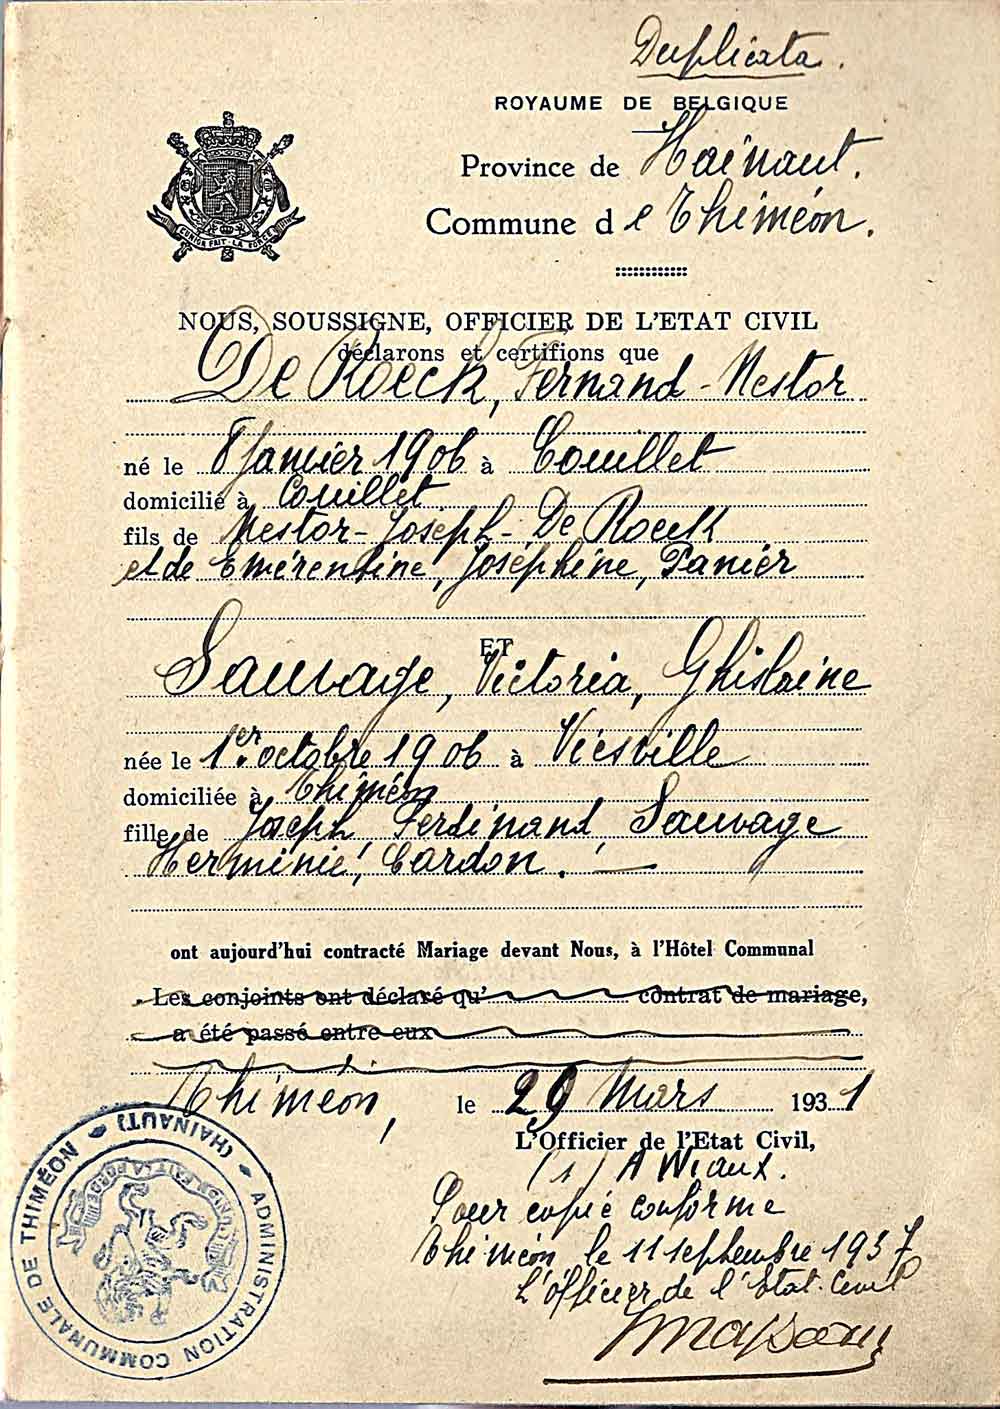 Duplicata.
ROYAUME DE BELGIQUE
Province de Hainaut.
Commune d e Thiméon.
UNION FAIT LA FORCE
NOUS, SOUSSIGNE, OFFICIER DE L'ETAT CIVIL
déclarons et certifions que
De Roeck, Fernand-Nestor
né le 8 Janvier 1906 à Couillet
domicilié à Couillet
fils de Nestor-Joseph-De Roeck
et de Emérentine, Joséphine, Panier
ET
Sauvage, Victoria, Ghislaine
née le 1er octobre 1906 à Viesville
domiciliée à Thiméon
fille de Joseph, Ferdinand, Sauvage
Herminie, Cardon.
ont aujourd'hui contracté Mariage devant Nous, à l'Hôtel Communal
Les conjoints ont déclaré qu' contrat de mariage,
a été passé entre eux
Thiméon, le 29 Mars 1931
L'Officier de l'Etat Civil,
(s) A Wiaux.
Pour copie conforme
Thiméon le 11 septembre 1937
L'officier de l'Etat-Civil
ADMINISTRATION COMMUNALE DE THIMÉON (HAINAUT)
L'UNION FAIT LA FORCE